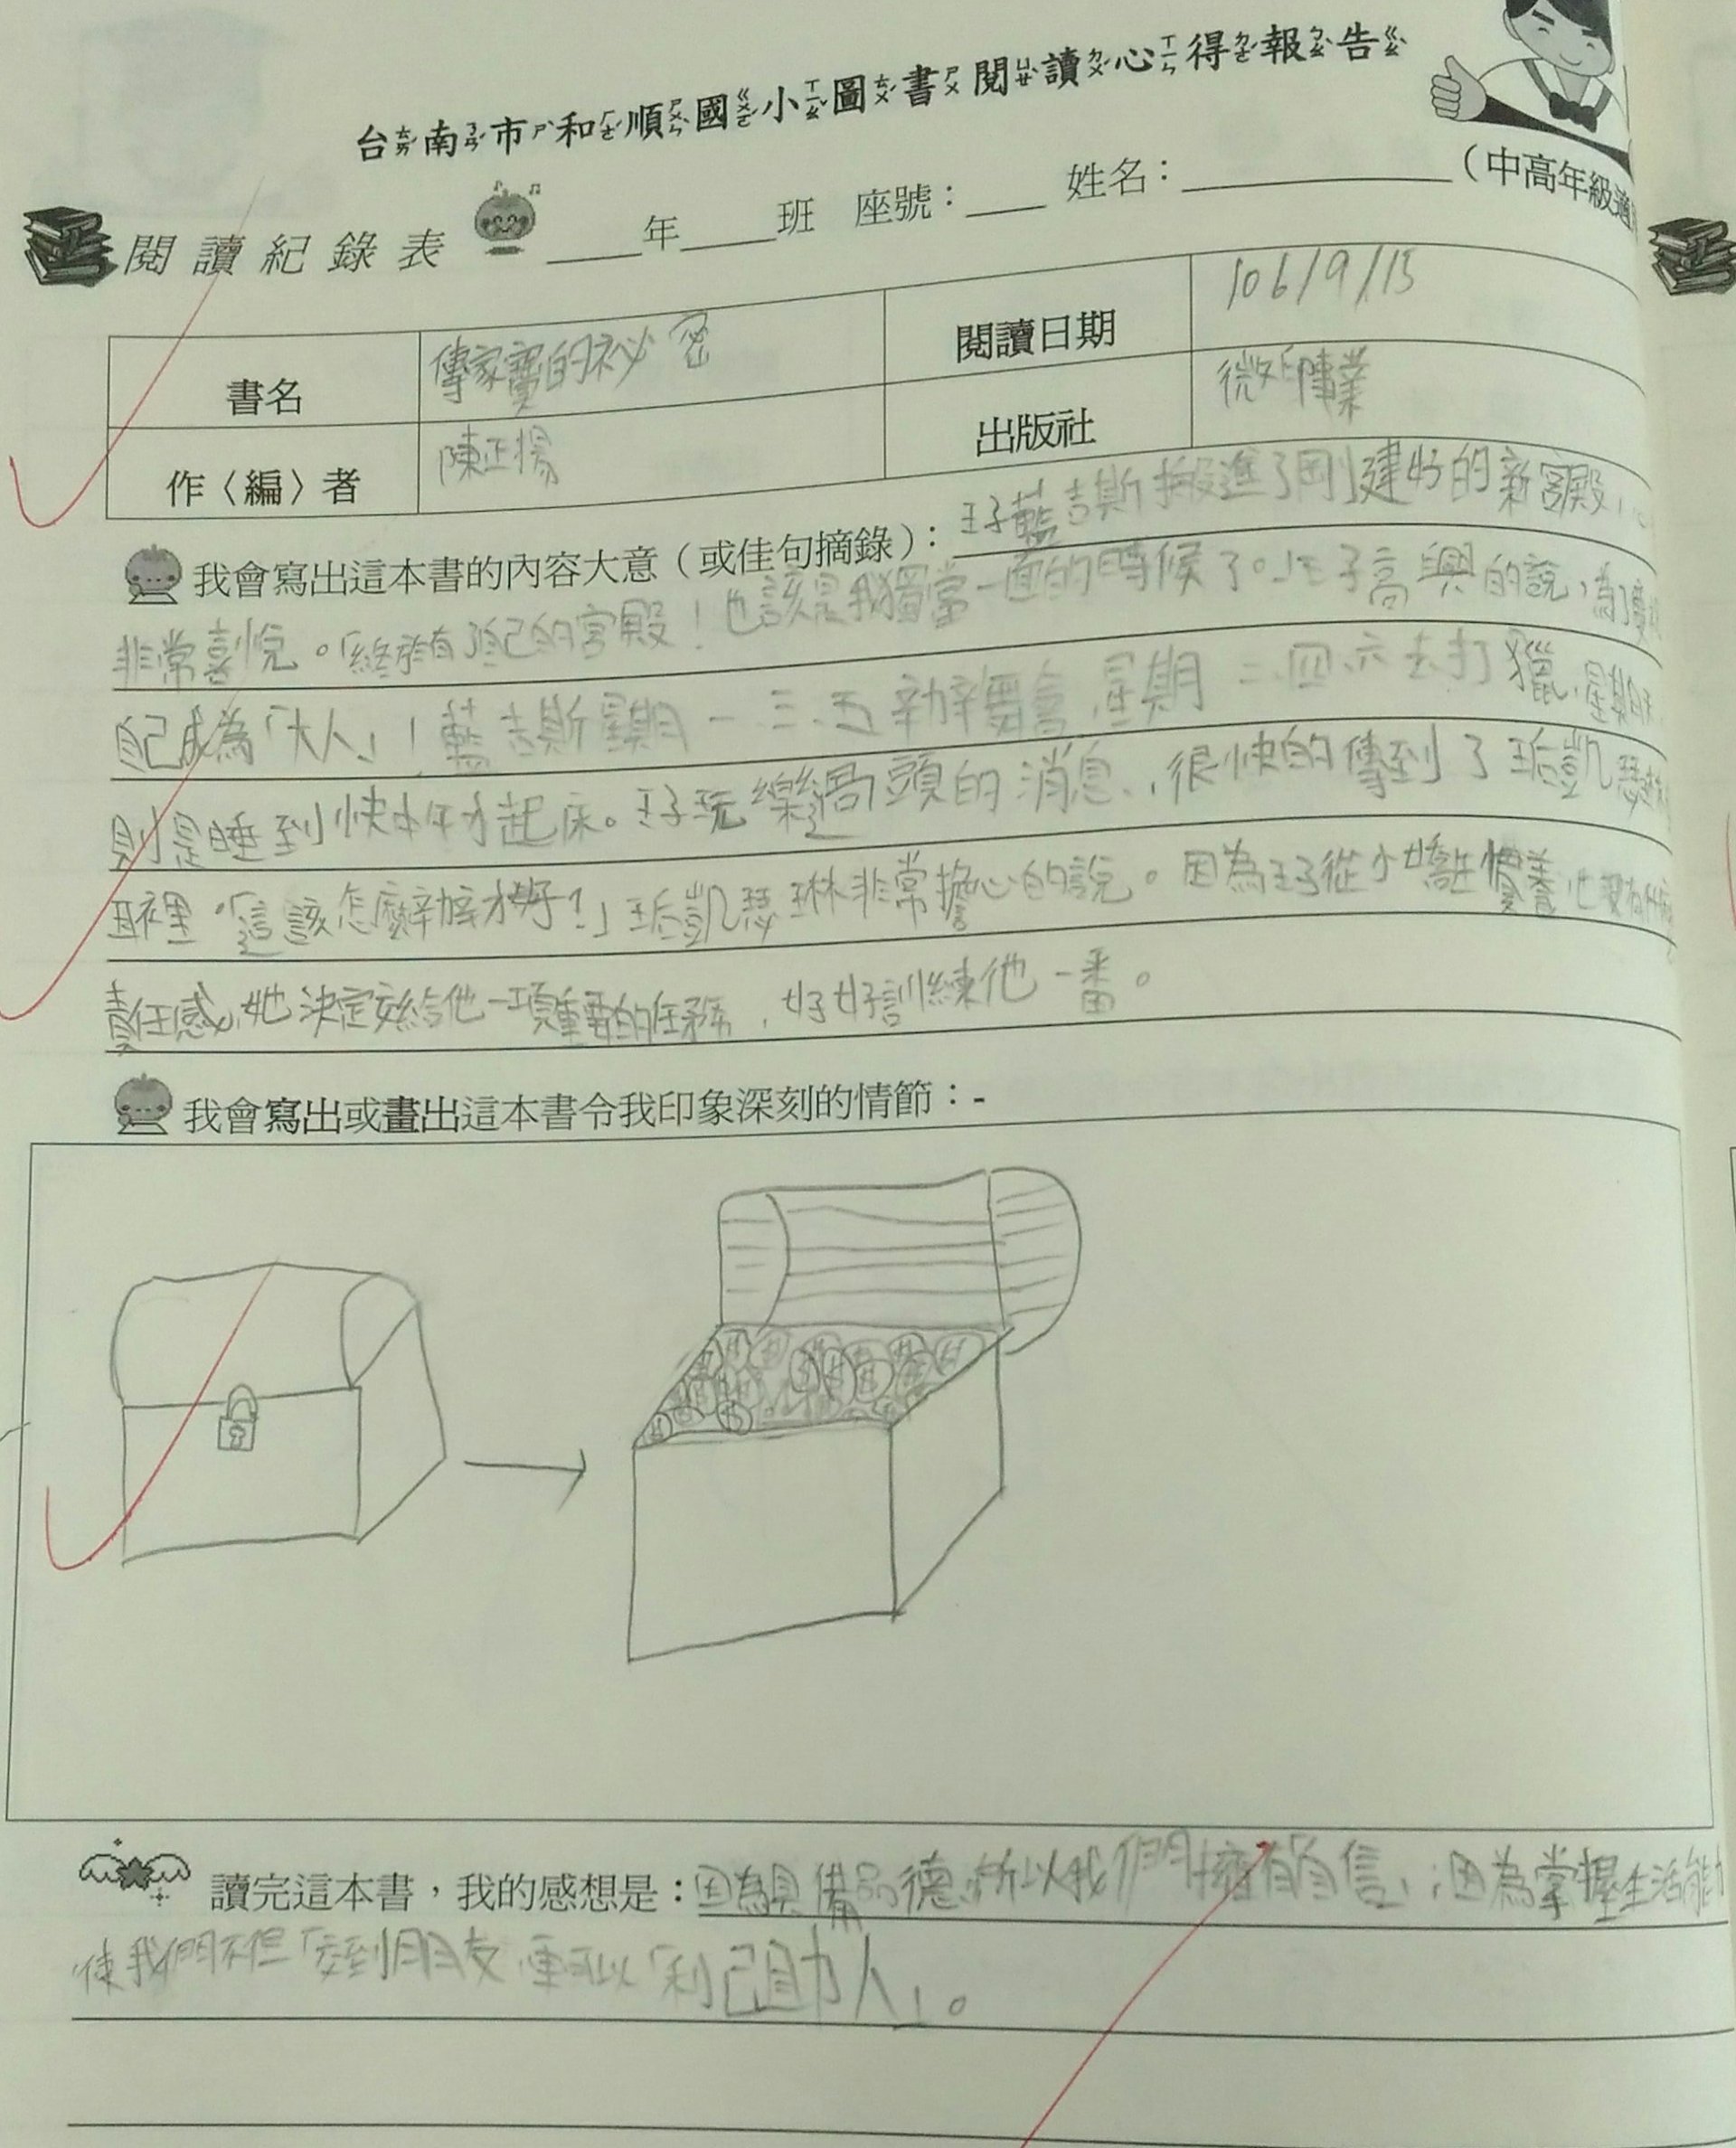 台南市和順國小圖書閱讀心得報告
閱讀紀錄表 ____年____班 座號：___ 姓名：__________ （中高年級適
書名 傳家寶的祕密 閱讀日期 106/9/15
作〈編〉者 陳正揚 出版社
我會寫出這本書的內容大意（或佳句摘錄）：王子藍吉斯搬進了剛建好的新宮殿，心
非常喜悅。「終於有了自己的宮殿！也該是我獨當一面的時候了。」王子高興的說，為了慶祝
自己成為「大人」！藍吉斯星期一.三.五辦舞會,星期二.四.六去打獵,星期天
則是睡到快中午才起床。王子玩樂過頭的消息,很快的傳到了王后凱瑟琳
耳裡。「這該怎麼辦才好？」王后凱瑟琳非常擔心的說。因為王子從小嬌生慣養也沒有什麼
責任感,她決定交給他一項重要的任務,好好訓練他一番。
我會寫出或畫出這本書令我印象深刻的情節：-
讀完這本書，我的感想是：因為具備品德,所以我們擁有「自信」;因為掌握生活能
使我們不但「交到朋友,更可以「利己助人」。